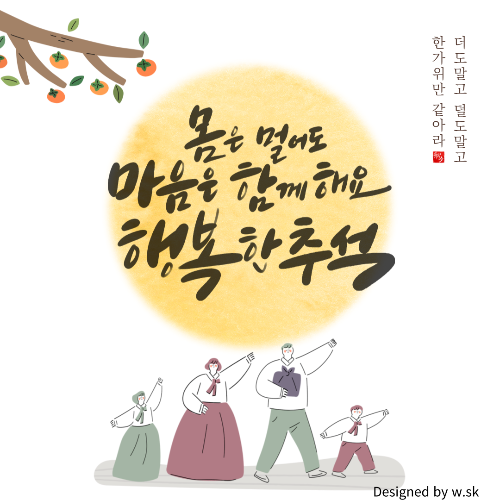 더도말고 덜도말고
한가위만 같아라
몸은 멀어도
마음은 함께해요
행복한추석
Designed by w.sk